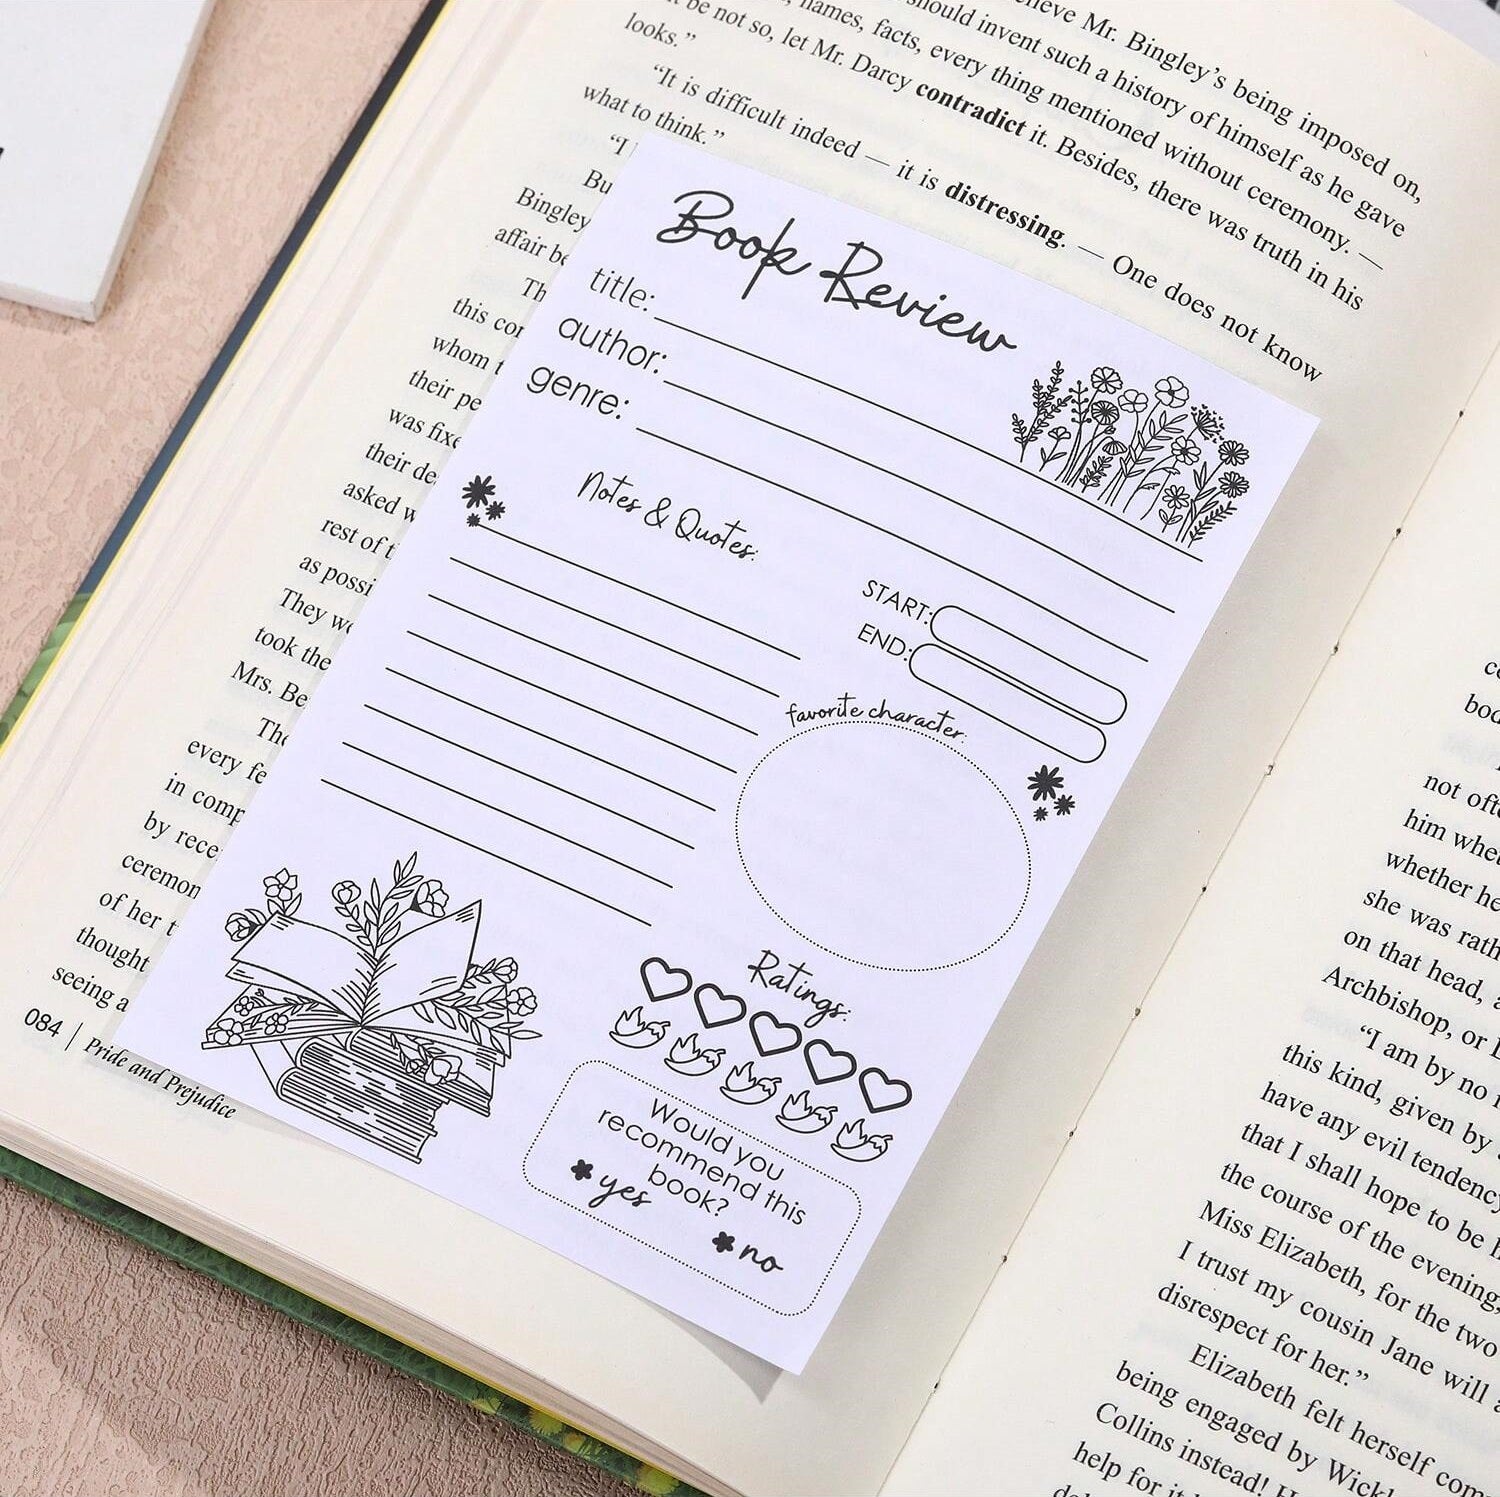 believe Mr. Bingley's being imposed on,
should invent such a history of himself as he gave
names, facts, every thing mentioned without ceremony. —
be not so, let Mr. Darcy contradict it. Besides, there was truth in his
looks."
"It is difficult indeed — it is distressing. — One does not know
what to think."
"I
Bu
Bingley
affair be
Th
this con
whom t
their pe
was fixe
their de
asked w
rest of t
as possi
They we
took the
Mrs. Be
The
every fe
in comp
by rece
ceremon
of her t
thought
seeing a
084 | Pride and Prejudice
Book Review
title:
author:
genre:
Notes & Quotes:
START:
END:
favorite character:
Ratings:
Would you
recommend this
book?
yes
no
co
bod
not ofte
him whet
whether he
she was rath
on that head, a
Archbishop, or L
"I am by no
this kind, given by
have any evil tendency
that I shall hope to be h
the course of the evening,
Miss Elizabeth, for the two
I trust my cousin Jane will a
disrespect for her."
Elizabeth felt herself com
being engaged by Wickh
Collins instead! H
help for it